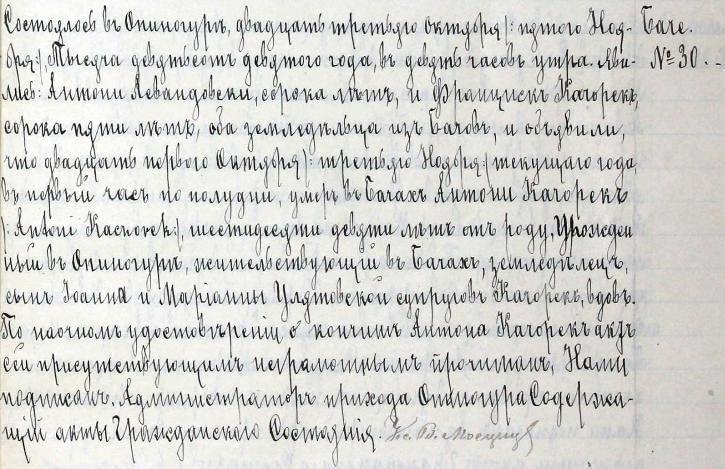 Состоялось въ Опиногурѣ, двадцать третьяго Октября /: пятого Ноя-
Баче.
бря :/ Тысяча девятьсотъ девятого года, въ девять часовъ утра. Яви-
№ 30.
лись: Антони Левандовски, сорока лѣтъ, и Францискъ Качорекъ,
сорока пяти лѣтъ, оба земледѣльца изъ Бачовъ, и объявили,
что двадцать первого Октября /: третьяго Ноября :/ текущаго года,
въ первый часъ по полудни, умеръ въ Бачахъ Антони Качорекъ
/: Antoni Kaczorek :/, шестидесяти девяти лѣтъ отъ роду, Урожден
ный въ Опиногурѣ, жительствующій въ Бачахъ, земледѣлецъ,
сынъ Іоанна и Маріанны Улятовской супруговъ Качорекъ, вдовъ.
По наочномъ удостовѣреніи о кончинѣ Антона Качорекъ актъ
сей присутствующимъ неграмотнымъ прочитанъ, Нами
подписанъ. Администраторъ прихода Опиногура Содержа-
щій акты Гражданского Состоянія. Кс. В.